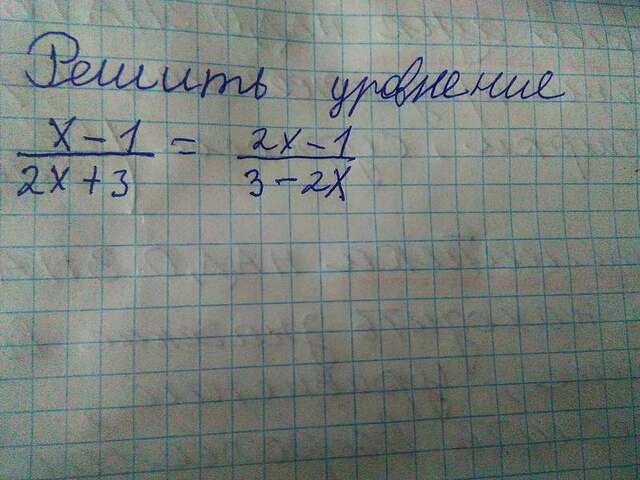 Решить уравнение
x - 1 = 2x - 1
2x + 3 3 - 2x